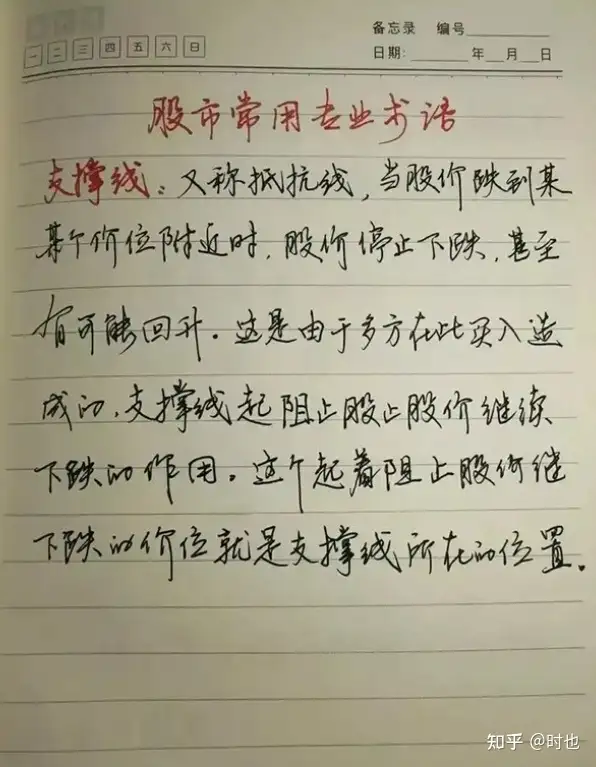 备忘录 编号
一 二 三 四 五 六 日
日期: 年 月 日
股市常用专业术语
支撑线：又称抵抗线，当股价跌到某
某个价位附近时，股价停止下跌，甚至
有可能回升。这是由于多方在此买入造
成的，支撑线起阻止股止股价继续
下跌的作用。这个起着阻止股价继
下跌的价位就是支撑线所在的位置。
知乎 @时也